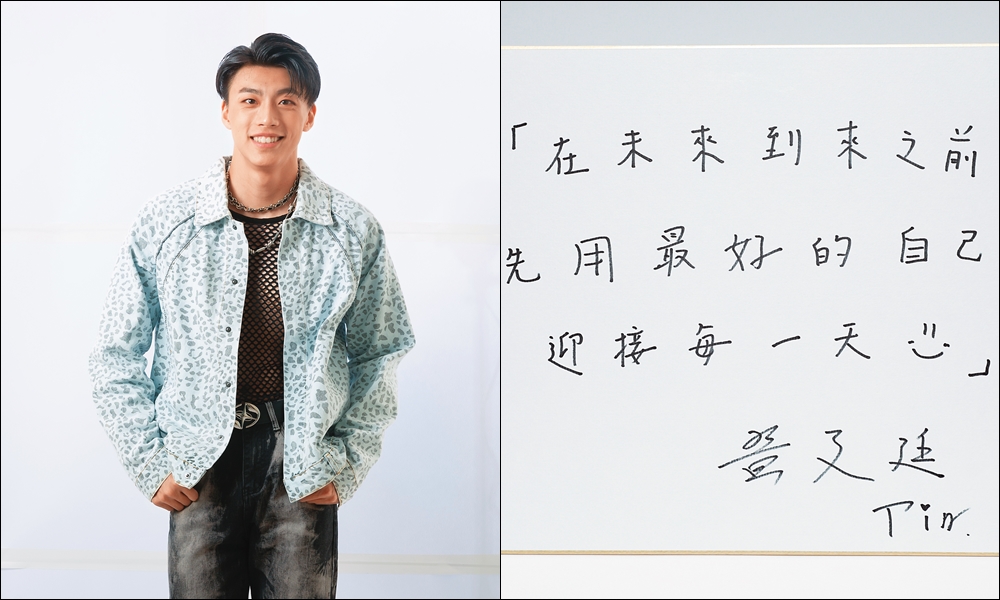 「在未來到來之前
先用最好的自己
迎接每一天」
Tin.